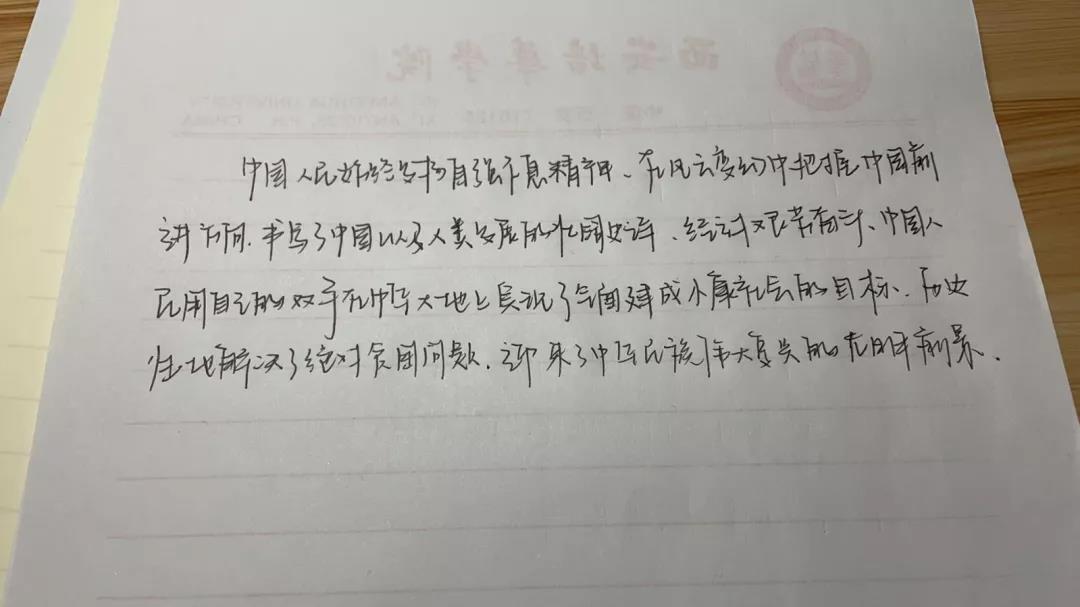 西安培华学院
中国人民始终发扬自强不息精神、在风云变幻中把握中国前
进方向.书写了中国以及人类发展的壮阔史诗、经过艰苦奋斗、中国人
民用自己的双手在中华大地上实现了全面建成小康社会的目标.历史
性地解决了绝对贫困问题.迎来了中华民族伟大复兴的光明前景.